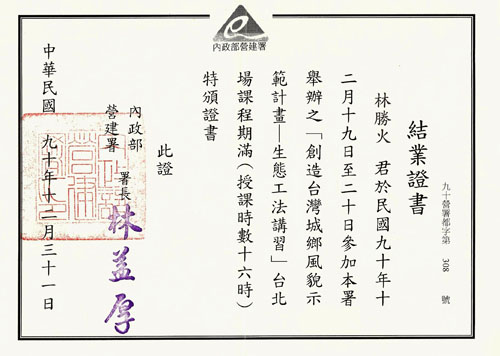 內政部營建署
結業證書
九十營署都字第 308 號
林勝火 君於民國九十年十
二月十九日至二十日參加本署
舉辦之「創造台灣城鄉風貌示
範計畫—生態工法講習」台北
場課程期滿(授課時數十六時)
特頒證書
此證
內政部
營建署
署長
林益厚
中華民國 九十年十二月三十一日